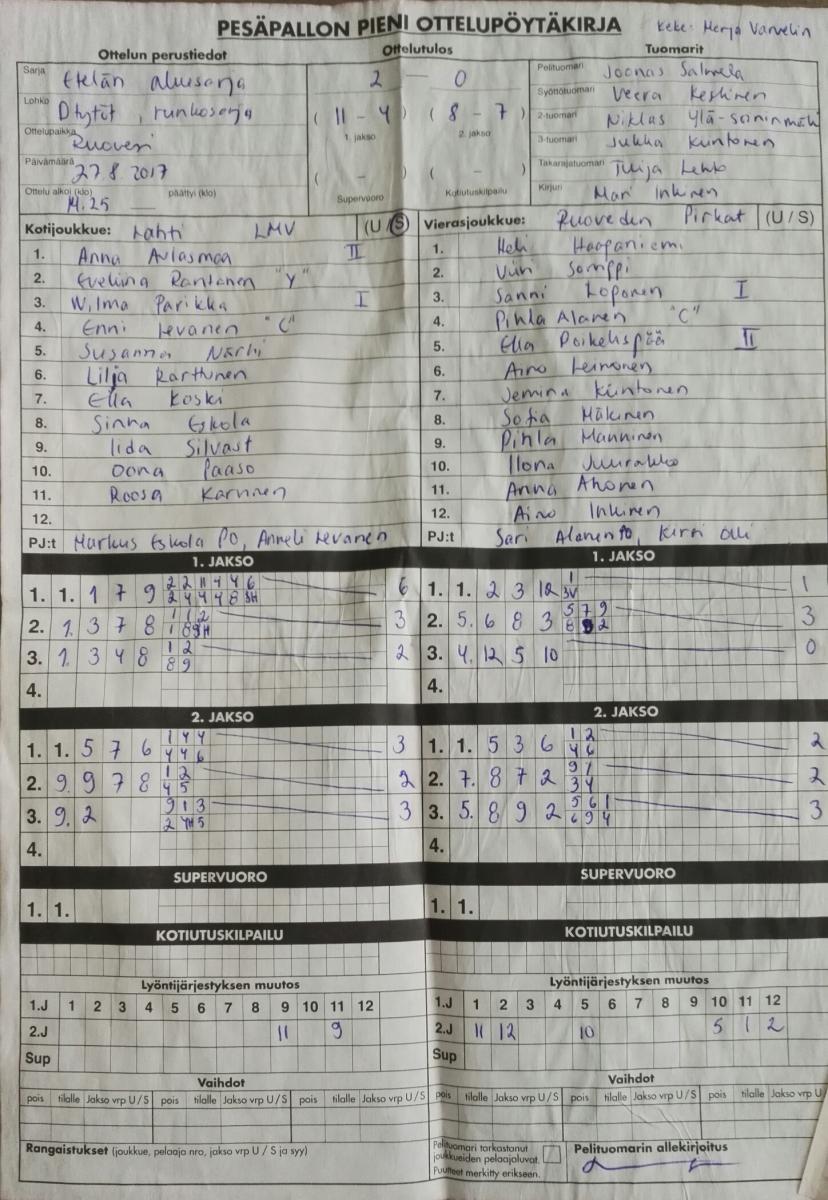 PESÄPALLON PIENI OTTELUPÖYTÄKIRJA
Keke: Merja Varvelin
Ottelun perustiedot
Ottelutulos
Tuomarit
Sarja Etelän aluesarja
Lohko Dtytöt, runkosarja
Ottelupaikka Ruovesi
Päivämäärä 27.8.2017
Ottelu alkoi (klo) 14.25 päättyi (klo)
2 - 0
(11 - 4) (8 - 7)
1. jakso 2. jakso
( - ) ( - )
Supervuoro Kotiutuskilpailu
Pelituomari Joonas Salmela
Syöttötuomari Veera Keskinen
2-tuomari Niklas Ylä-Soininmäki
3-tuomari Jukka Kuntonen
Takarajatuomari Tuija Lehto
Kirjuri Mari Inkinen
Kotijoukkue: Lahti LMV (U / S)
1. Anna Avlasmaa II
2. Eveliina Rantanen "Y"
3. Wilma Parikka I
4. Enni Levanen "C"
5. Susanna Närhi
6. Lilja Karttunen
7. Ella Koski
8. Sinna Eskola
9. Iida Silvast
10. Oona Paaso
11. Roosa Karvinen
12.
PJ:t Markus Eskola PO, Anneli Levanen
Vierasjoukkue: Ruoveden Pirkat (U / S)
1. Heli Haapaniemi
2. Viivi Somppi
3. Sanni Loponen I
4. Pihla Alanen "C"
5. Ella Poikelispää II
6. Aino Leinonen
7. Jemina Kuntonen
8. Sofia Mäkinen
9. Pihla Manninen
10. Ilona Juurakko
11. Anna Ahonen
12. Aino Inkinen
PJ:t Sari Alanen PO, Kirsi Olli
1. JAKSO
1. 1. 1 7 9 2 2 11 4 4 6 6
2 4 4 4 8 SH
2. 1. 3 7 8 1 1 2 3
1 8 9H
3. 1. 3 4 8 1 2 2
8 9
4.
1. JAKSO
1. 1. 2 3 12 1 1
3V
2. 5. 6 8 3 5 7 9 3
8 9 2
3. 4. 12 5 10 0
4.
2. JAKSO
1. 1. 5 7 6 1 4 4 3
4 4 6
2. 9. 9 7 8 1 2 2
4 5
3. 9. 2 9 1 3 3
2 4H 5
4.
2. JAKSO
1. 1. 5 3 6 1 2 2
4 6
2. 7. 8 7 2 9 1 2
3 4
3. 5. 8 9 2 5 6 1 3
6 9 4
4.
SUPERVUORO
1. 1.
SUPERVUORO
1. 1.
KOTIUTUSKILPAILU
KOTIUTUSKILPAILU
Lyöntijärjestyksen muutos
1.J 1 2 3 4 5 6 7 8 9 10 11 12
2.J 11 9
Sup
Lyöntijärjestyksen muutos
1.J 1 2 3 4 5 6 7 8 9 10 11 12
2.J 11 12 10 5 1 2
Sup
Vaihdot
pois tilalle Jakso vrp U / S pois tilalle Jakso vrp U / S pois tilalle Jakso vrp U / S
Vaihdot
pois tilalle Jakso vrp U / S pois tilalle Jakso vrp U / S pois tilalle Jakso vrp U
Rangaistukset (joukkue, pelaaja nro, jakso vrp U / S ja syy)
Pelituomari tarkastanut
joukkueiden pelaajaluvat.
Puutteet merkitty erikseen.
Pelituomarin allekirjoitus